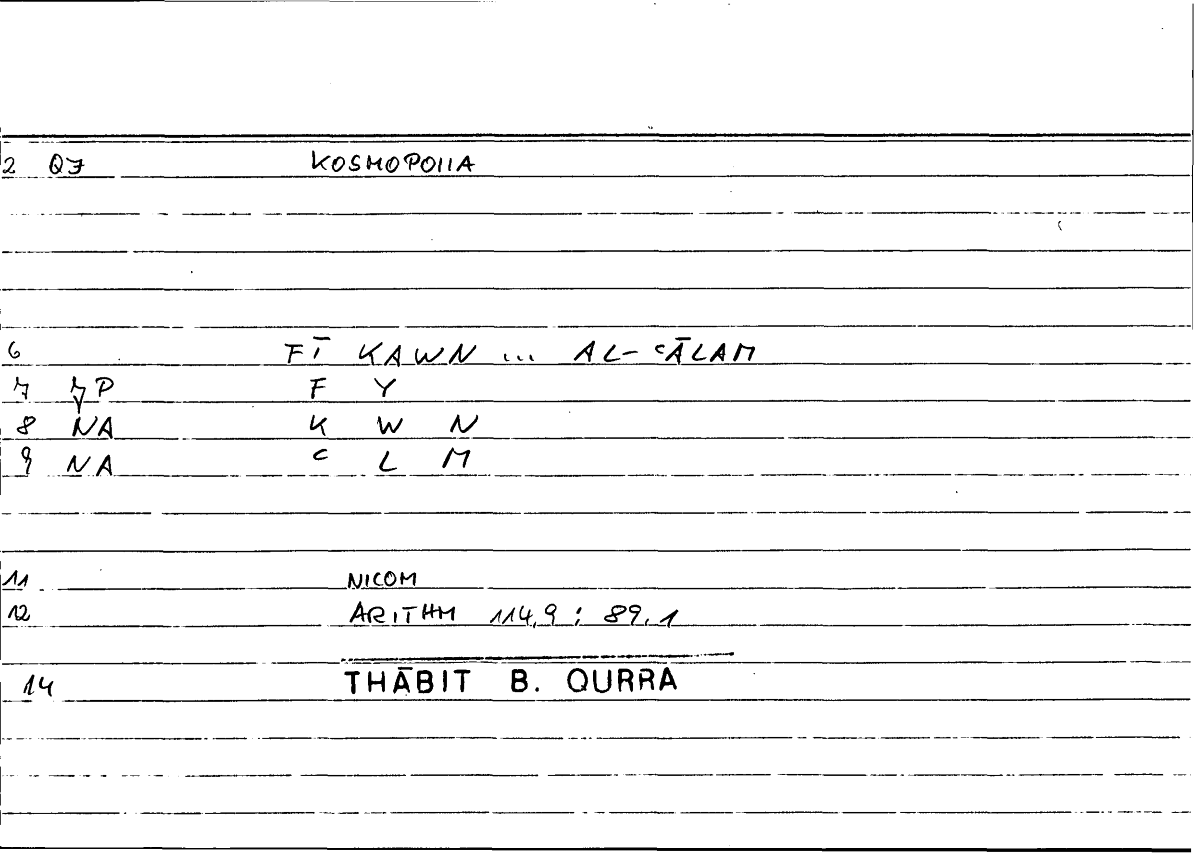 2 QJ KOSMOPOIIA
6 FĪ KAWN ... AL-ʿĀLAM
7 P F Y
8 NA K W N
9 NA ʿ L M
11 NICOM
12 ARITHM 114,9 : 89,1
14 THĀBIT B. QURRA